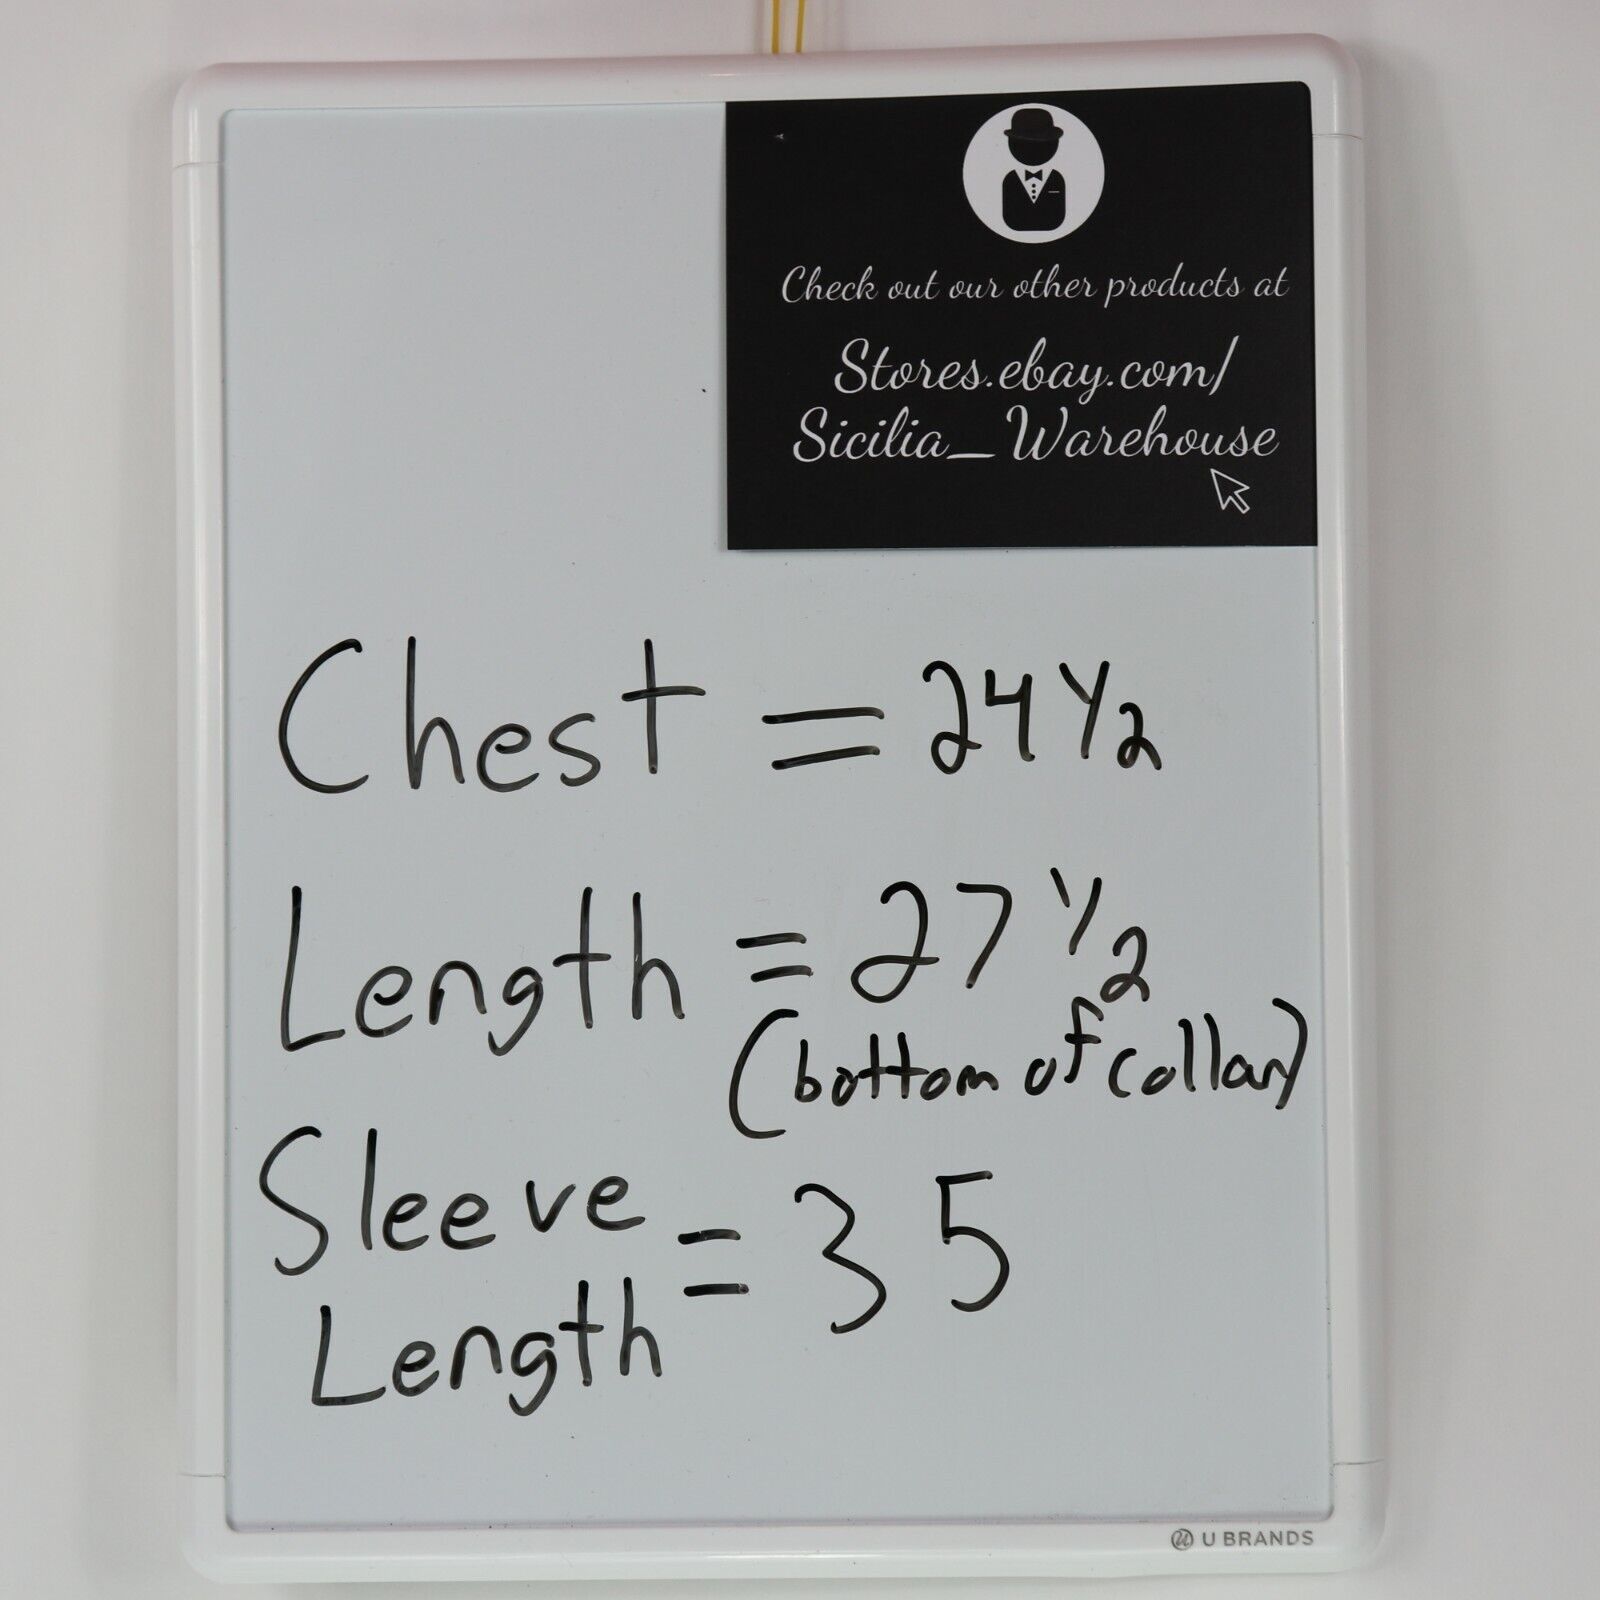 Check out our other products at
Stores.ebay.com/
Sicilia_Warehouse
Chest = 24 1/2
Length = 27 1/2
(bottom of collar)
Sleeve
Length = 35
U BRANDS